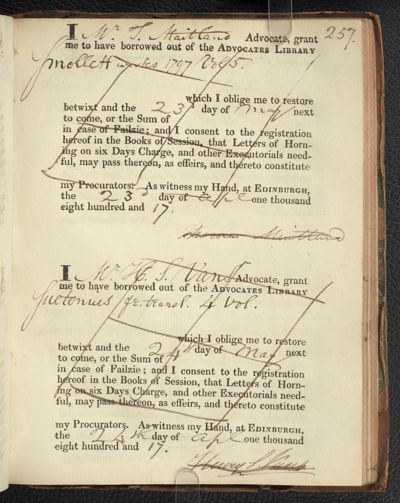 257.
I Mr T. Maitland Advocate, grant
me to have borrowed out of the ADVOCATES LIBRARY
Smollett works 1797 Vol 5.
which I oblige me to restore
betwixt and the 23d day of May next
to come, or the Sum of
in case of Failzie; and I consent to the registration
hereof in the Books of Session, that Letters of Horn-
ing on six Days Charge, and other Executorials need-
ful, may pass thereon, as effeirs, and thereto constitute
my Procurators. As witness my Hand, at EDINBURGH,
the 23d day of Apl one thousand
eight hundred and 17.
Thomas Maitland
I Mr H. S. Vans Advocate, grant
me to have borrowed out of the ADVOCATES LIBRARY
Suetonius fr. transl. 4 Vol.
which I oblige me to restore
betwixt and the 24th day of May next
to come, or the Sum of
in case of Failzie; and I consent to the registration
hereof in the Books of Session, that Letters of Horn-
ing on six Days Charge, and other Executorials need-
ful, may pass thereon, as effeirs, and thereto constitute
my Procurators. As witness my Hand, at EDINBURGH,
the 24th day of Apl one thousand
eight hundred and 17.
Henry S Vans